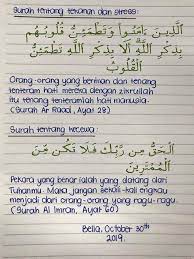 Surah tentang tekanan dan stress:
الَّذِينَ ءَامَنُوا وَتَطْمَئِنُّ قُلُوبُهُم
بِذِكْرِ اللَّهِ أَلَا بِذِكْرِ اللَّهِ تَطْمَئِنُّ
الْقُلُوبُ
Orang-orang yang beriman dan tenang
tenteram hati mereka dengan zikrullah
itu tenang tenteramlah hati manusia.
(Surah Ar Raad, Ayat 28)
Surah tentang kecewa:
الْحَقُّ مِن رَّبِّكَ فَلَا تَكُن مِّنَ
الْمُمْتَرِينَ
Perkara yang benar ialah yang datang dari
Tuhanmu. Maka jangan sekali-kali engkau
menjadi dari orang-orang yang ragu-ragu.
(Surah Al Imran, Ayat 60)
Bella, October 30th
2019.